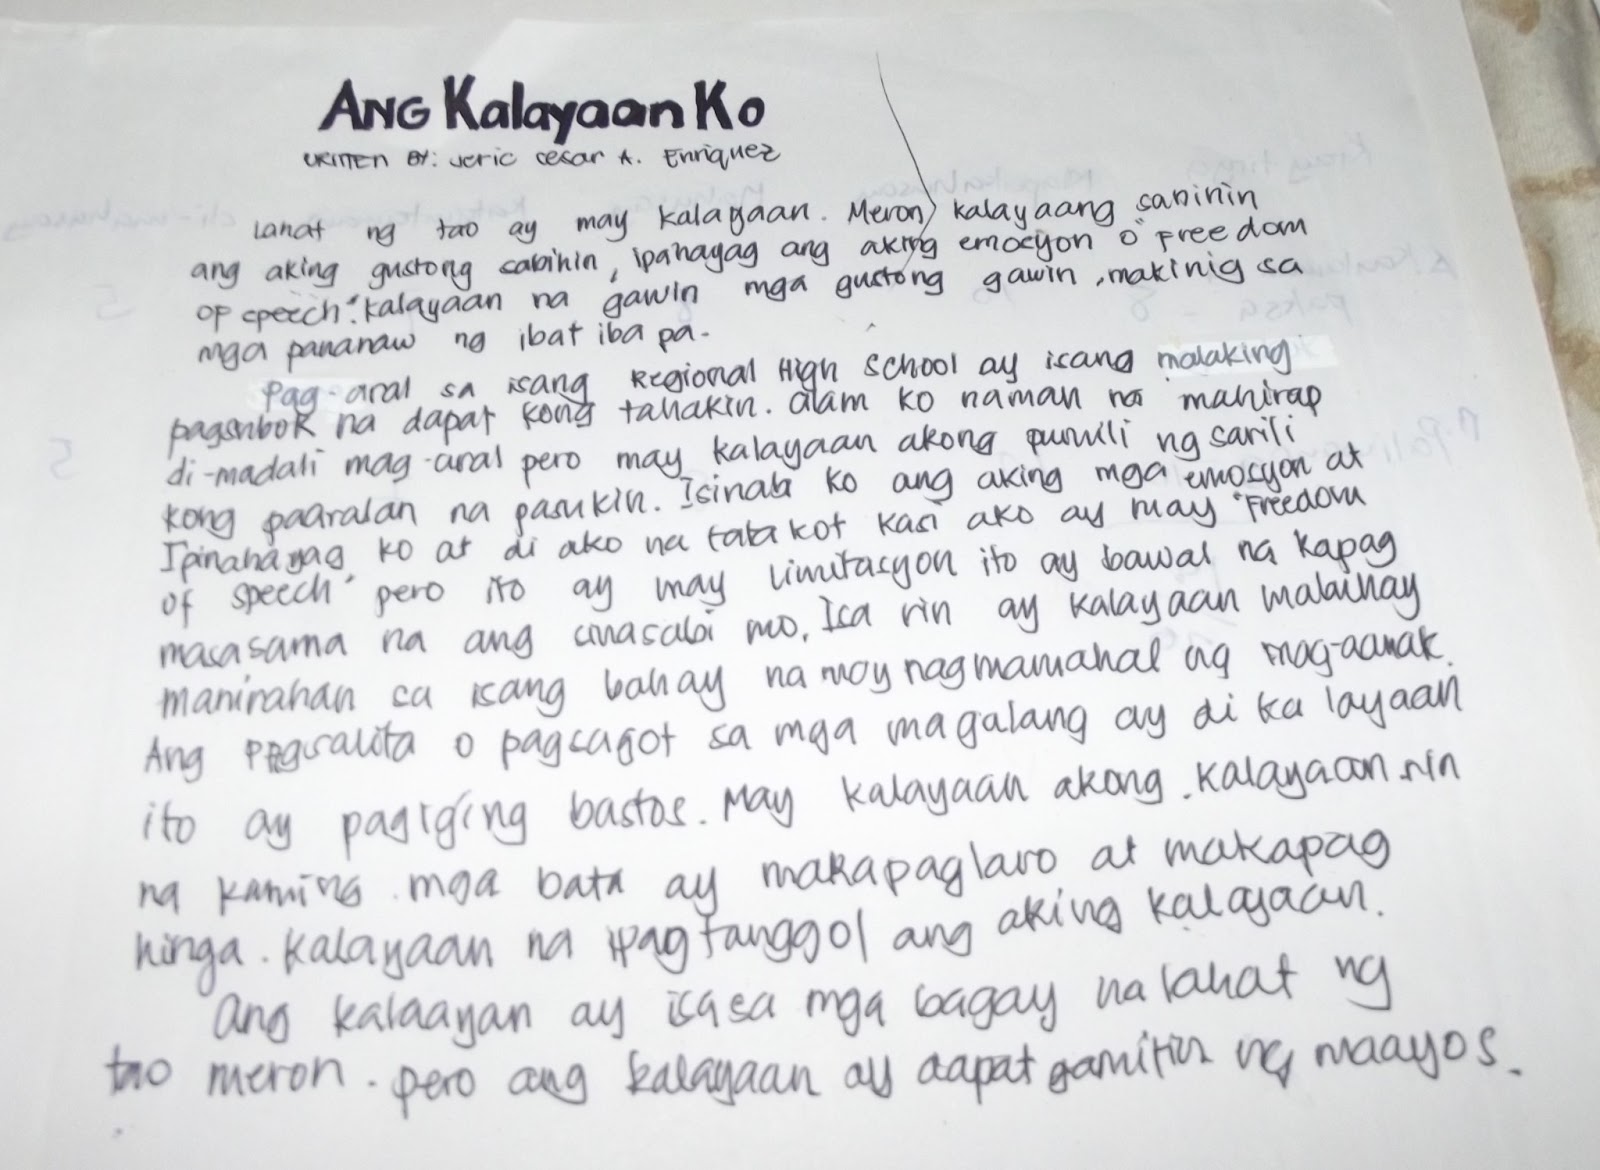 ANG Kalayaan Ko
WRITTEN BY: Jeric Cesar A. Enriquez
Lahat ng tao ay may kalayaan. Meron kalayaang sabihin
ang aking gustong sabihin, ipahayag ang aking emocyon o "Freedom
of speech". Kalayaan na gawin mga gustong gawin, makinig sa
mga pananaw ng ibat iba pa.
Pag-aral sa isang Regional High School ay isang malaking
pagsubok na dapat kong tahakin. alam ko naman na mahirap
di-madali mag-aral pero may kalayaan akong pumili ng sarili
kong paaralan na pasukin. Isinabi ko ang aking mga emosyon at
Ipinahayag ko at di ako na tatakot kasi ako ay may "Freedom
of speech" pero ito ay may limitasyon ito ay bawal na kapag
masasama na ang sinasabi mo. Isa rin ay kalayaan mabuhay
manirahan sa isang bahay na may nagmamahal ng mag-aanak.
Ang pagsalita o pagsagot sa mga magalang ay di ka layaan
ito ay pagiging bastos. May kalayaan akong. kalayaan rin
na kaming mga bata ay makapaglaro at makapag
hinga. kalayaan na ipagtanggol ang aking kalayaan.
Ang kalaayan ay isa sa mga bagay na lahat ng
tao meron. pero ang kalayaan ay dapat gamitin ng maayos.